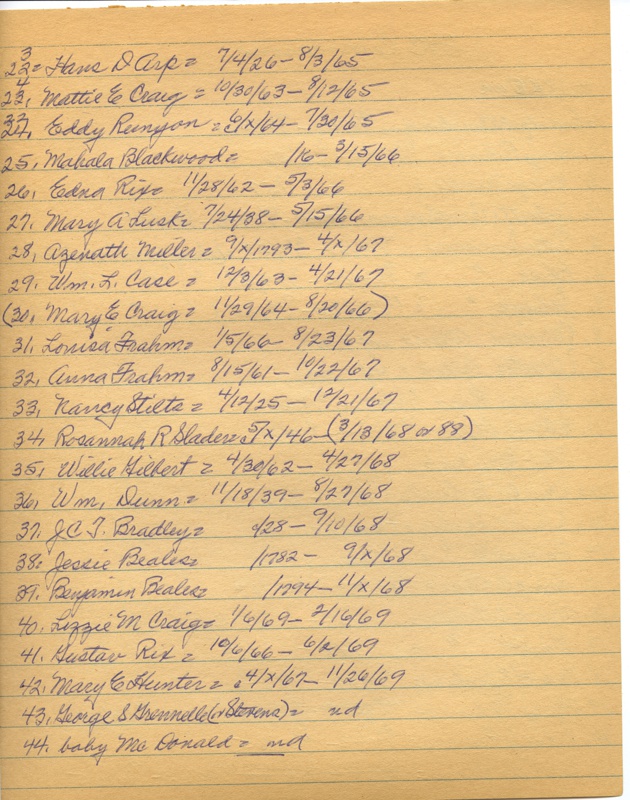 3
22= Hans D Arp = 7/4/26 – 8/3/65
4
23, Mattie E Craig = 10/30/63 – 8/12/65
22
24, Eddy Runyon = 6/x/64 – 7/30/65
25, Mahala Blackwood = /16 – 3/15/66
26, Edna Rix = 11/28/62 – 5/3/66
27, Mary A Lusk = 7/24/38 – 5/15/66
28, Azenath Miller = 9/x/1793 – 4/x/67
29, Wm. L. Case = 12/3/63 – 4/21/67
(30, Mary E Craig = 11/29/64 – 8/20/66)
31, Louisa Frahm = 1/5/66 – 8/23/67
32, Anna Frahm = 8/15/61 – 10/22/67
33, Nancy Stilts = 4/12/25 – 12/21/67
34, Rosannah R Slader = 5/x/46 – (3/13/68 or 88)
35, Willie Gilbert = 4/30/62 – 4/27/68
36, Wm, Dunn = 11/18/39 – 8/27/68
37, J C T. Bradley = /28 – 9/10/68
38, Jessie Beales = /1782 – 9/x/68
39, Benjamin Beales = /1794 – 11/x/68
40, Lizzie M Craig = 1/6/69 – 2/16/69
41, Gustav Rix = 10/6/66 – 6/2/69
42, Mary E Hunter = 4/x/67 – 11/26/69
43, George S Grennelle (or Stevens) = nd
44, baby McDonald = nd